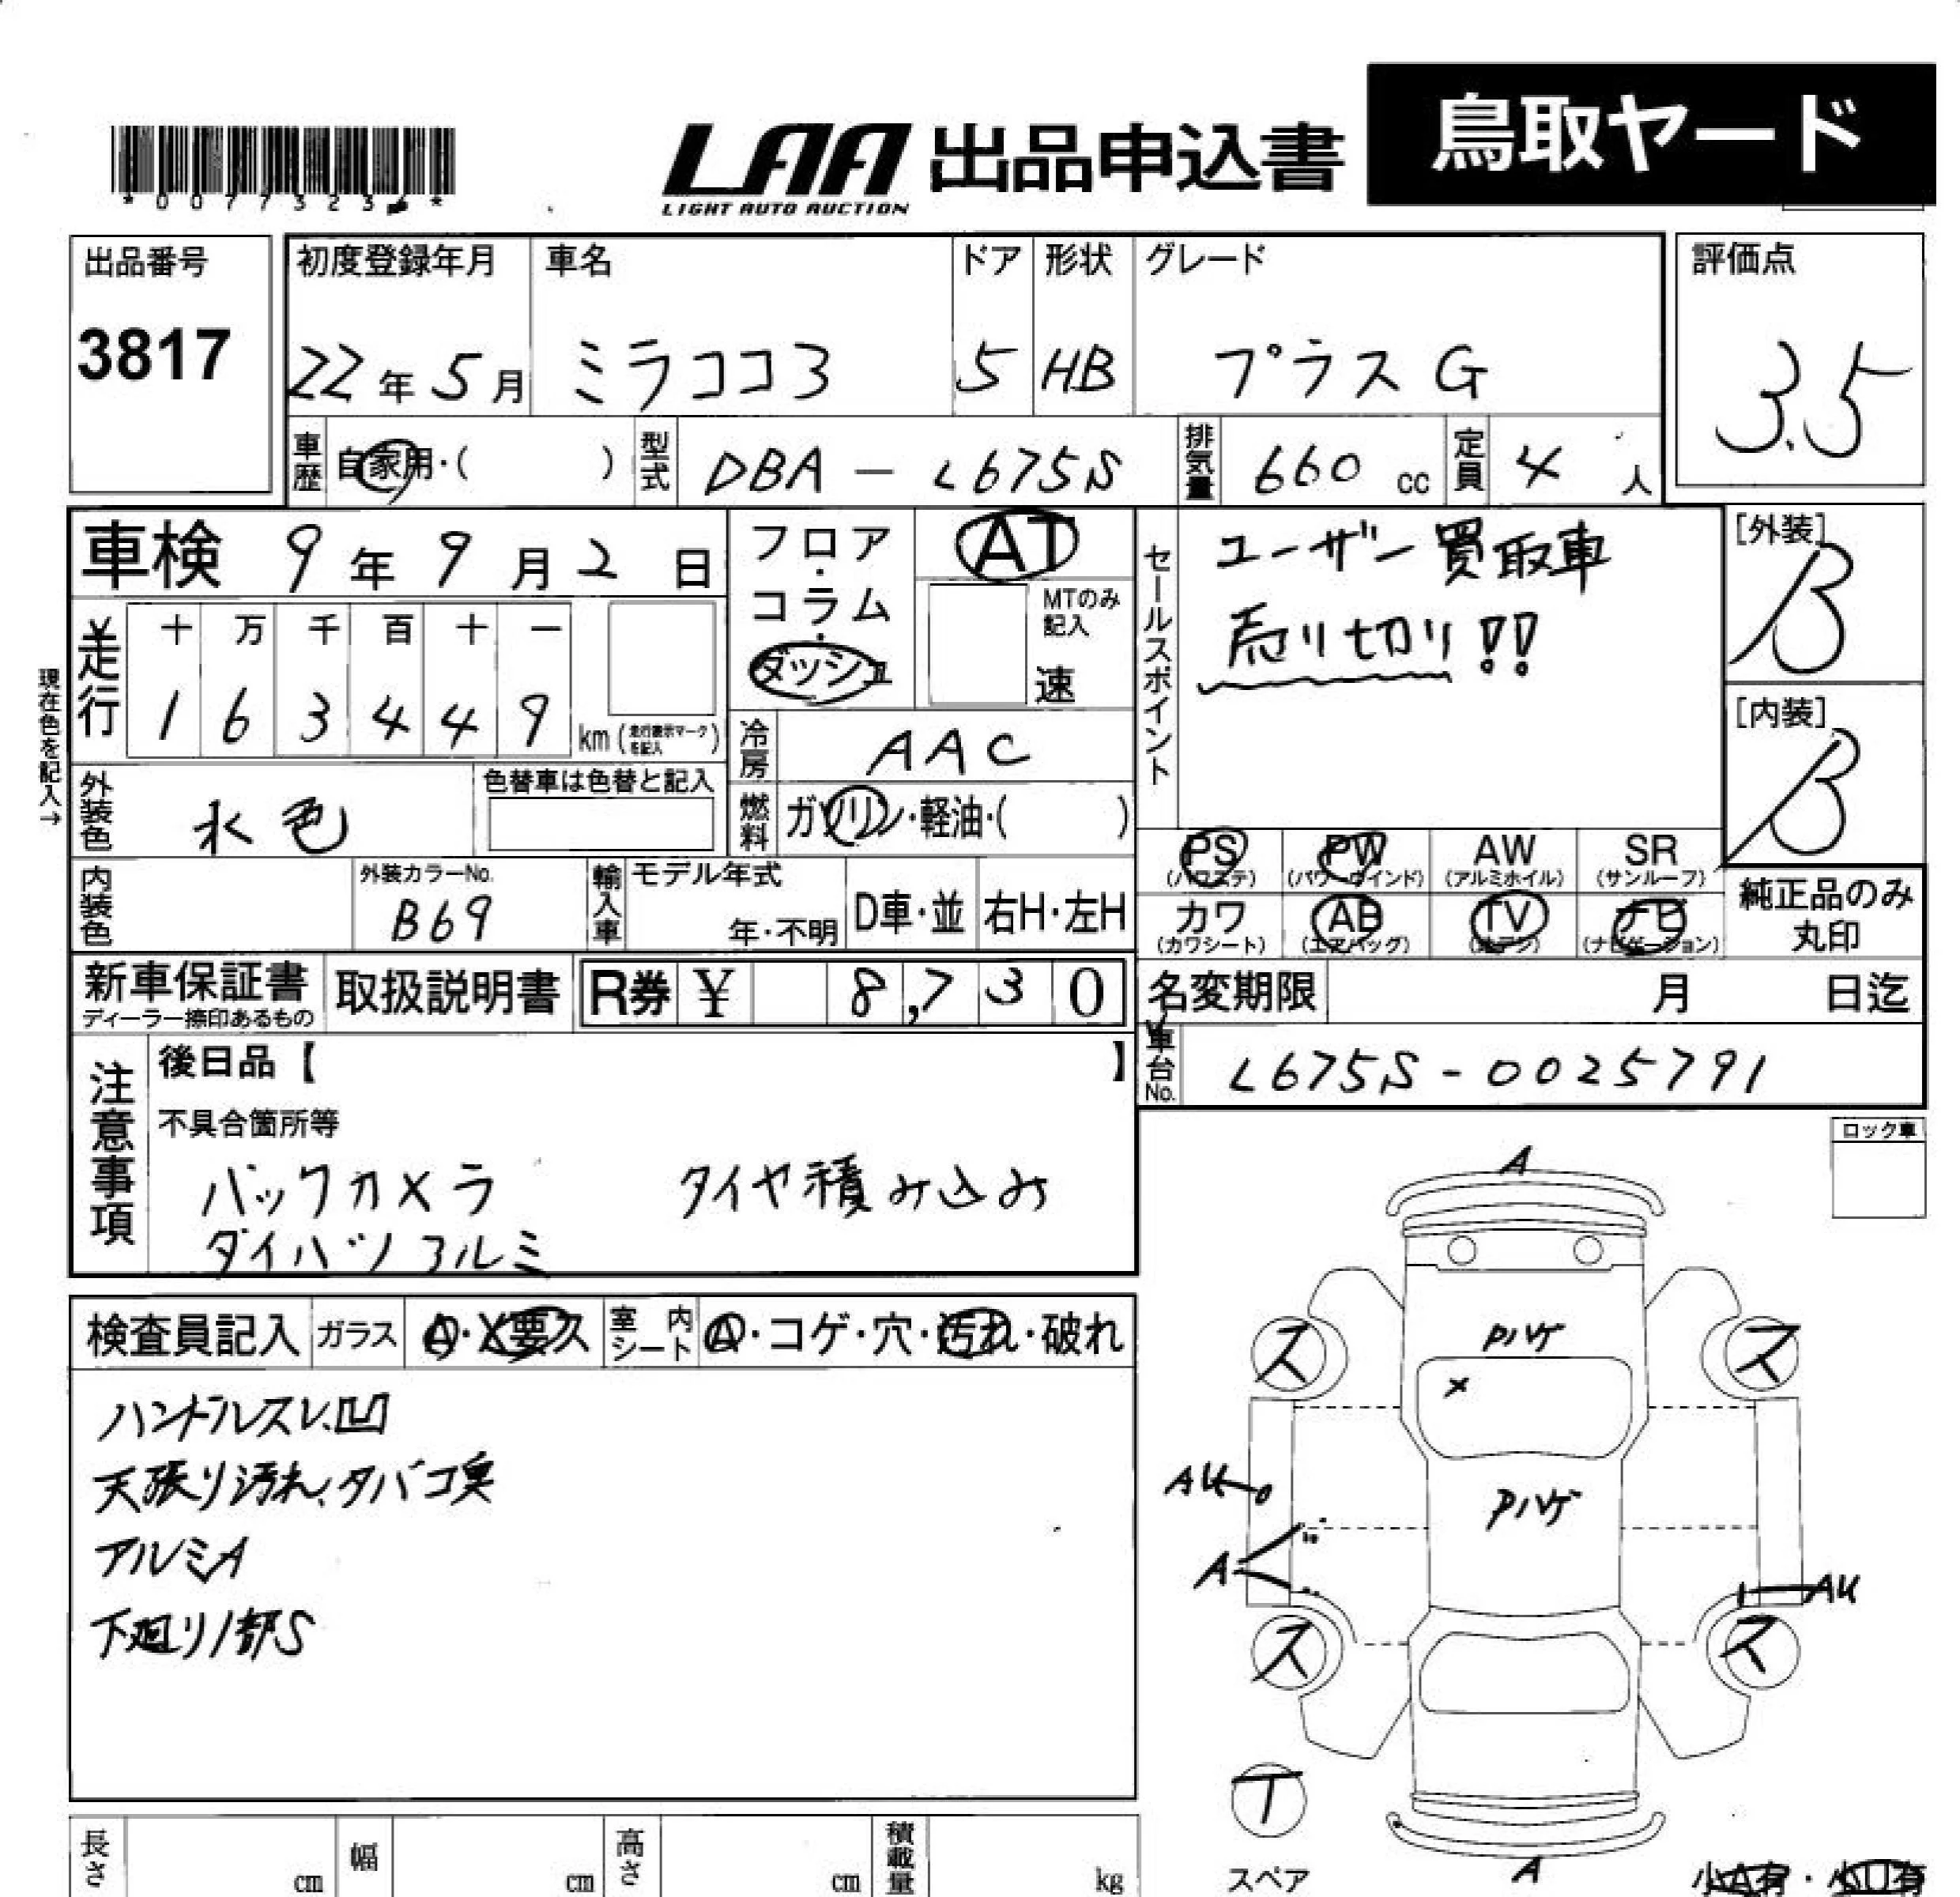 鳥取ヤード
LAA 出品申込書
LIGHT AUTO AUCTION
出品番号
3817
初度登録年月
22年5月
車名
ミラココ3
ドア
5
形状
HB
グレード
プラスG
評価点
3.5
車歴 自家用・( )
型式 DBA-L675S
排気量 660 cc
定員 4 人
車検 9年9月2日
フロア・コラム・ダッシュ
AT
MTのみ記入
速
セールスポイント
ユーザー買取車
売り切り!!
[外装]
B
[内装]
B
現在色を記入→
走行
十 万 千 百 十 一
1 6 3 4 4 9 km (走行表示マークを記入)
冷房 AAC
外装色 水色
色替車は色替と記入
燃料 ガソリン・軽油・( )
PS (パワステ)
PW (パワーウインド)
AW (アルミホイル)
SR (サンルーフ)
内装色
外装カラーNo.
B69
輸入車 モデル年式
年・不明
D車・並
右H・左H
カワ (カワシート)
AB (エアバッグ)
TV (地デジ)
ナビ (ナビゲーション)
純正品のみ丸印
新車保証書
ディーラー捺印あるもの
取扱説明書
R券 ¥ 8,730
名変期限 月 日迄
車台No. L675S-0025791
注意事項
後日品【 】
不具合箇所等
バックカメラ タイヤ積み込み
ダイハツアルミ
ロック車
検査員記入
ガラス A・X要ス
室内シート A・コゲ・穴・汚れ・破れ
ハンドルスレ、凹
天張り汚れ、タバコ臭
アルミA
下廻り1部S
A
Pハゲ
ス ス
X
AU
Pハゲ
A
AU
ス ス
T
スペア
A
長さ cm
幅 cm
高さ cm
積載量 kg